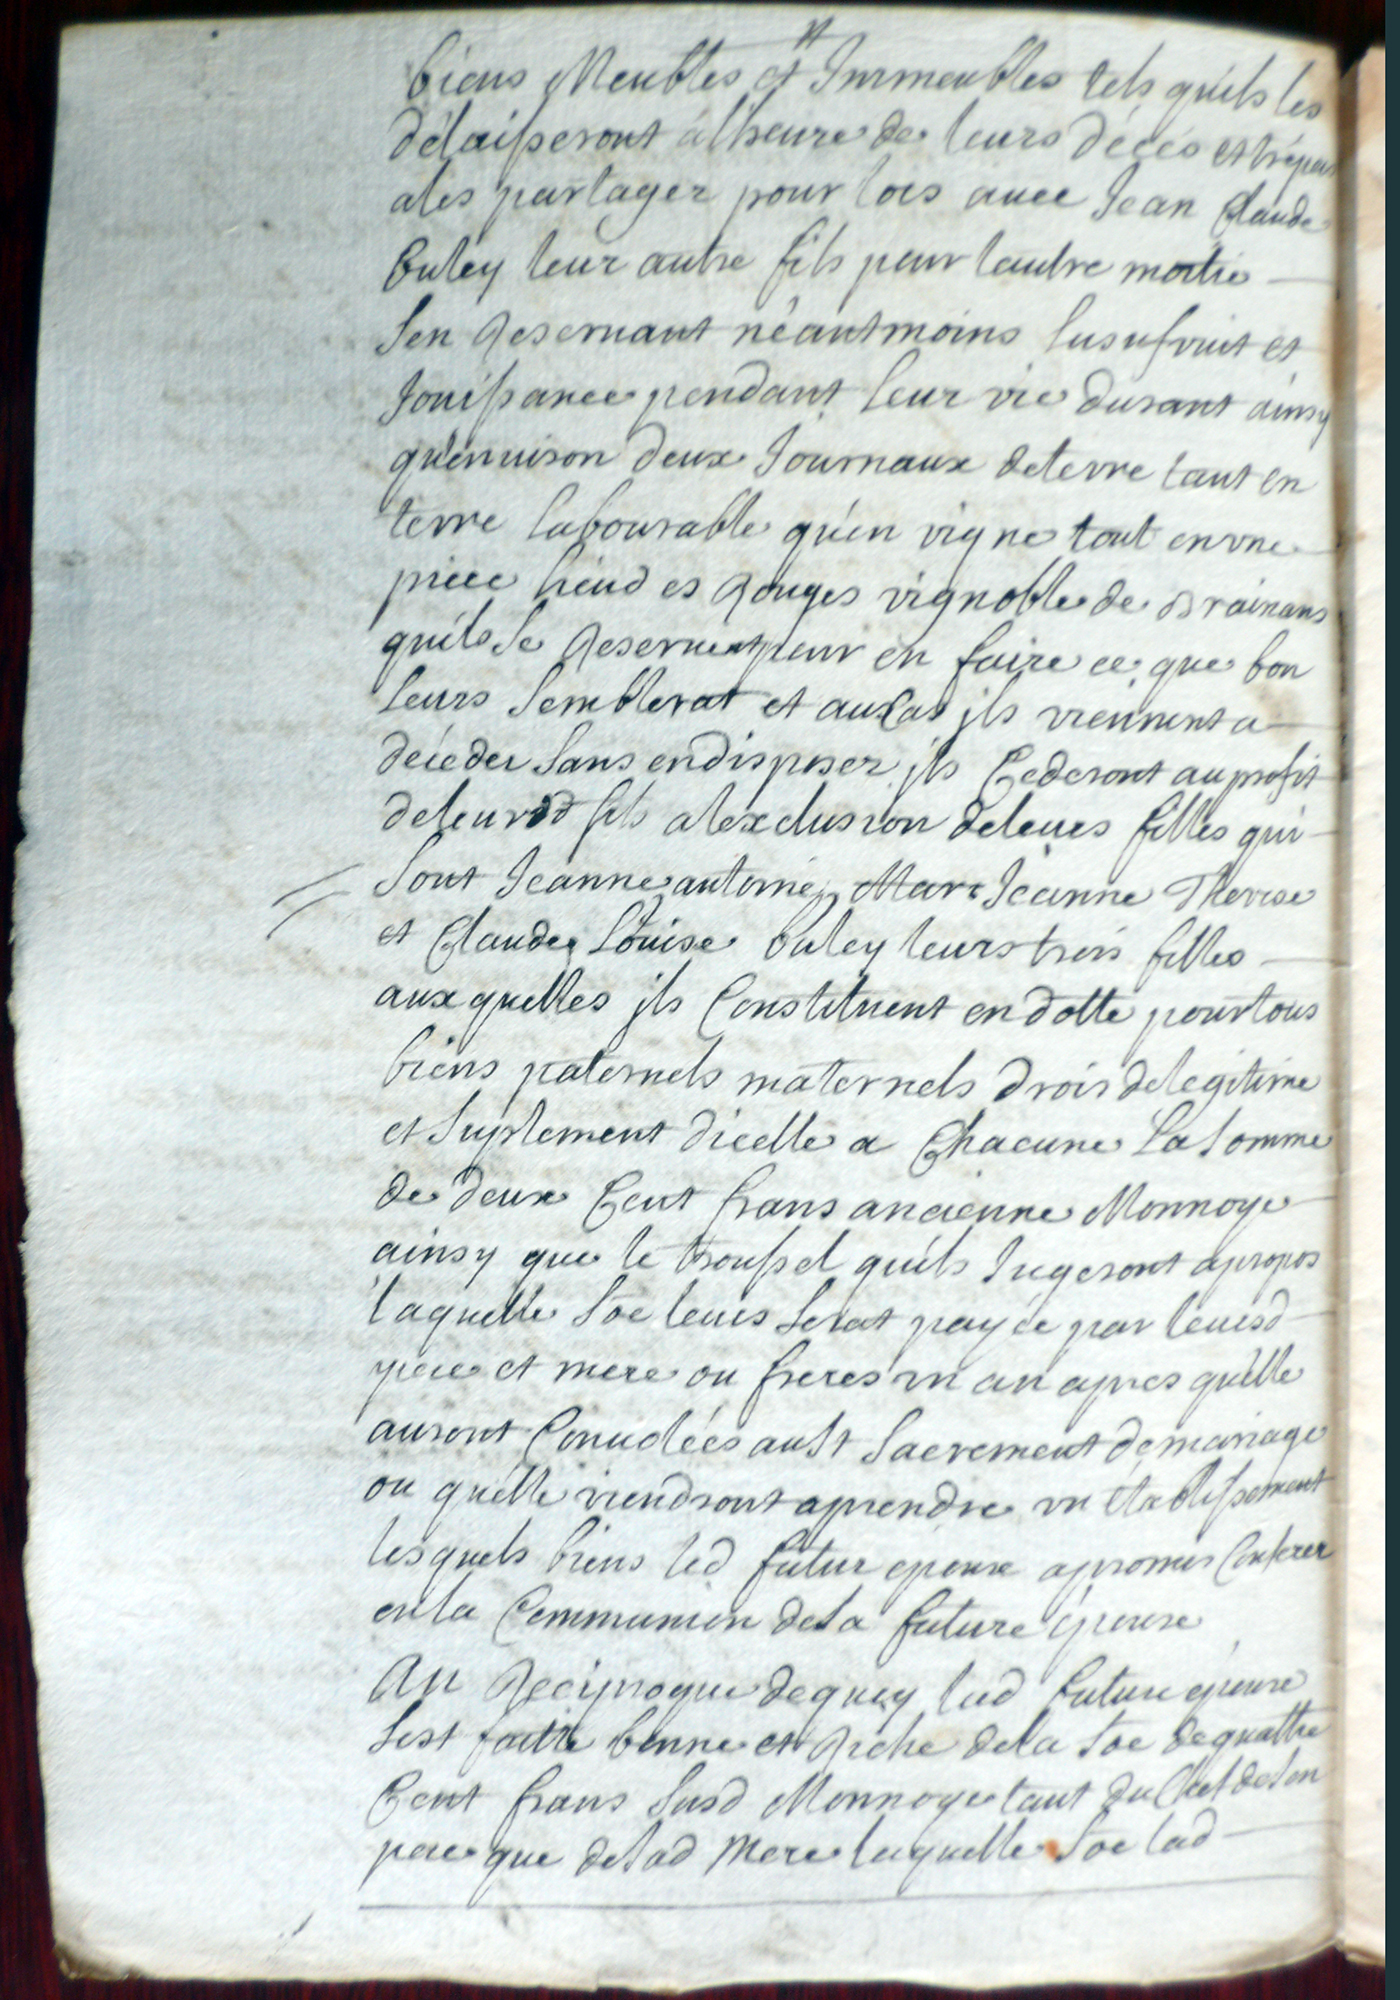 biens Meubles et Immeubles tels quils les
délaisseront a lheure de leurs décés et trépas
ales partager pour lors avec Jean Claude
buley leur autre fils pour lautre moitié
sen Reservant néantmoins lusufruit et
Jouissance pendant leur vie durant ainsy
quenuiron deux Journaux de terre tant en
terre labourable quen vigne tout en vne
piece lieud es Rouges vignoble de Brainans
quils se Reservent pour en faire ce que bon
leurs semblerat et au Cas jls viennent a
déceder sans en disposer jls Cederont au profit
de leursd fils a lexclusion de leurs filles qui
sont Jeanne antoine, Marie Jeanne Therese
et Claude Louise buley leurs trois filles
aux quelles jls Constituent en dotte pour tous
biens paternels maternels drois de legitime
et suplement dicelle a Chacune La somme
de deux Cent frans ancienne Monnoye
ainsy que le troussel quils Jugeront apropos
laquelle soe leurs serat payée par leursd
pere et mere ou freres vn an apres quelle
auront Conuolées au St sacrement de mariage
ou quelle viendront aprendre vn établissement
lesquels biens led futur epoux a promis Conferer
en la Communion de la future épouse
Au Reciproque de quoy lad future epouse
sest faitte bonne et Riche de la soe de quattre
Cent frans susd Monnoye tant du Chef de son
pere que de sad Mere laquelle soe lad